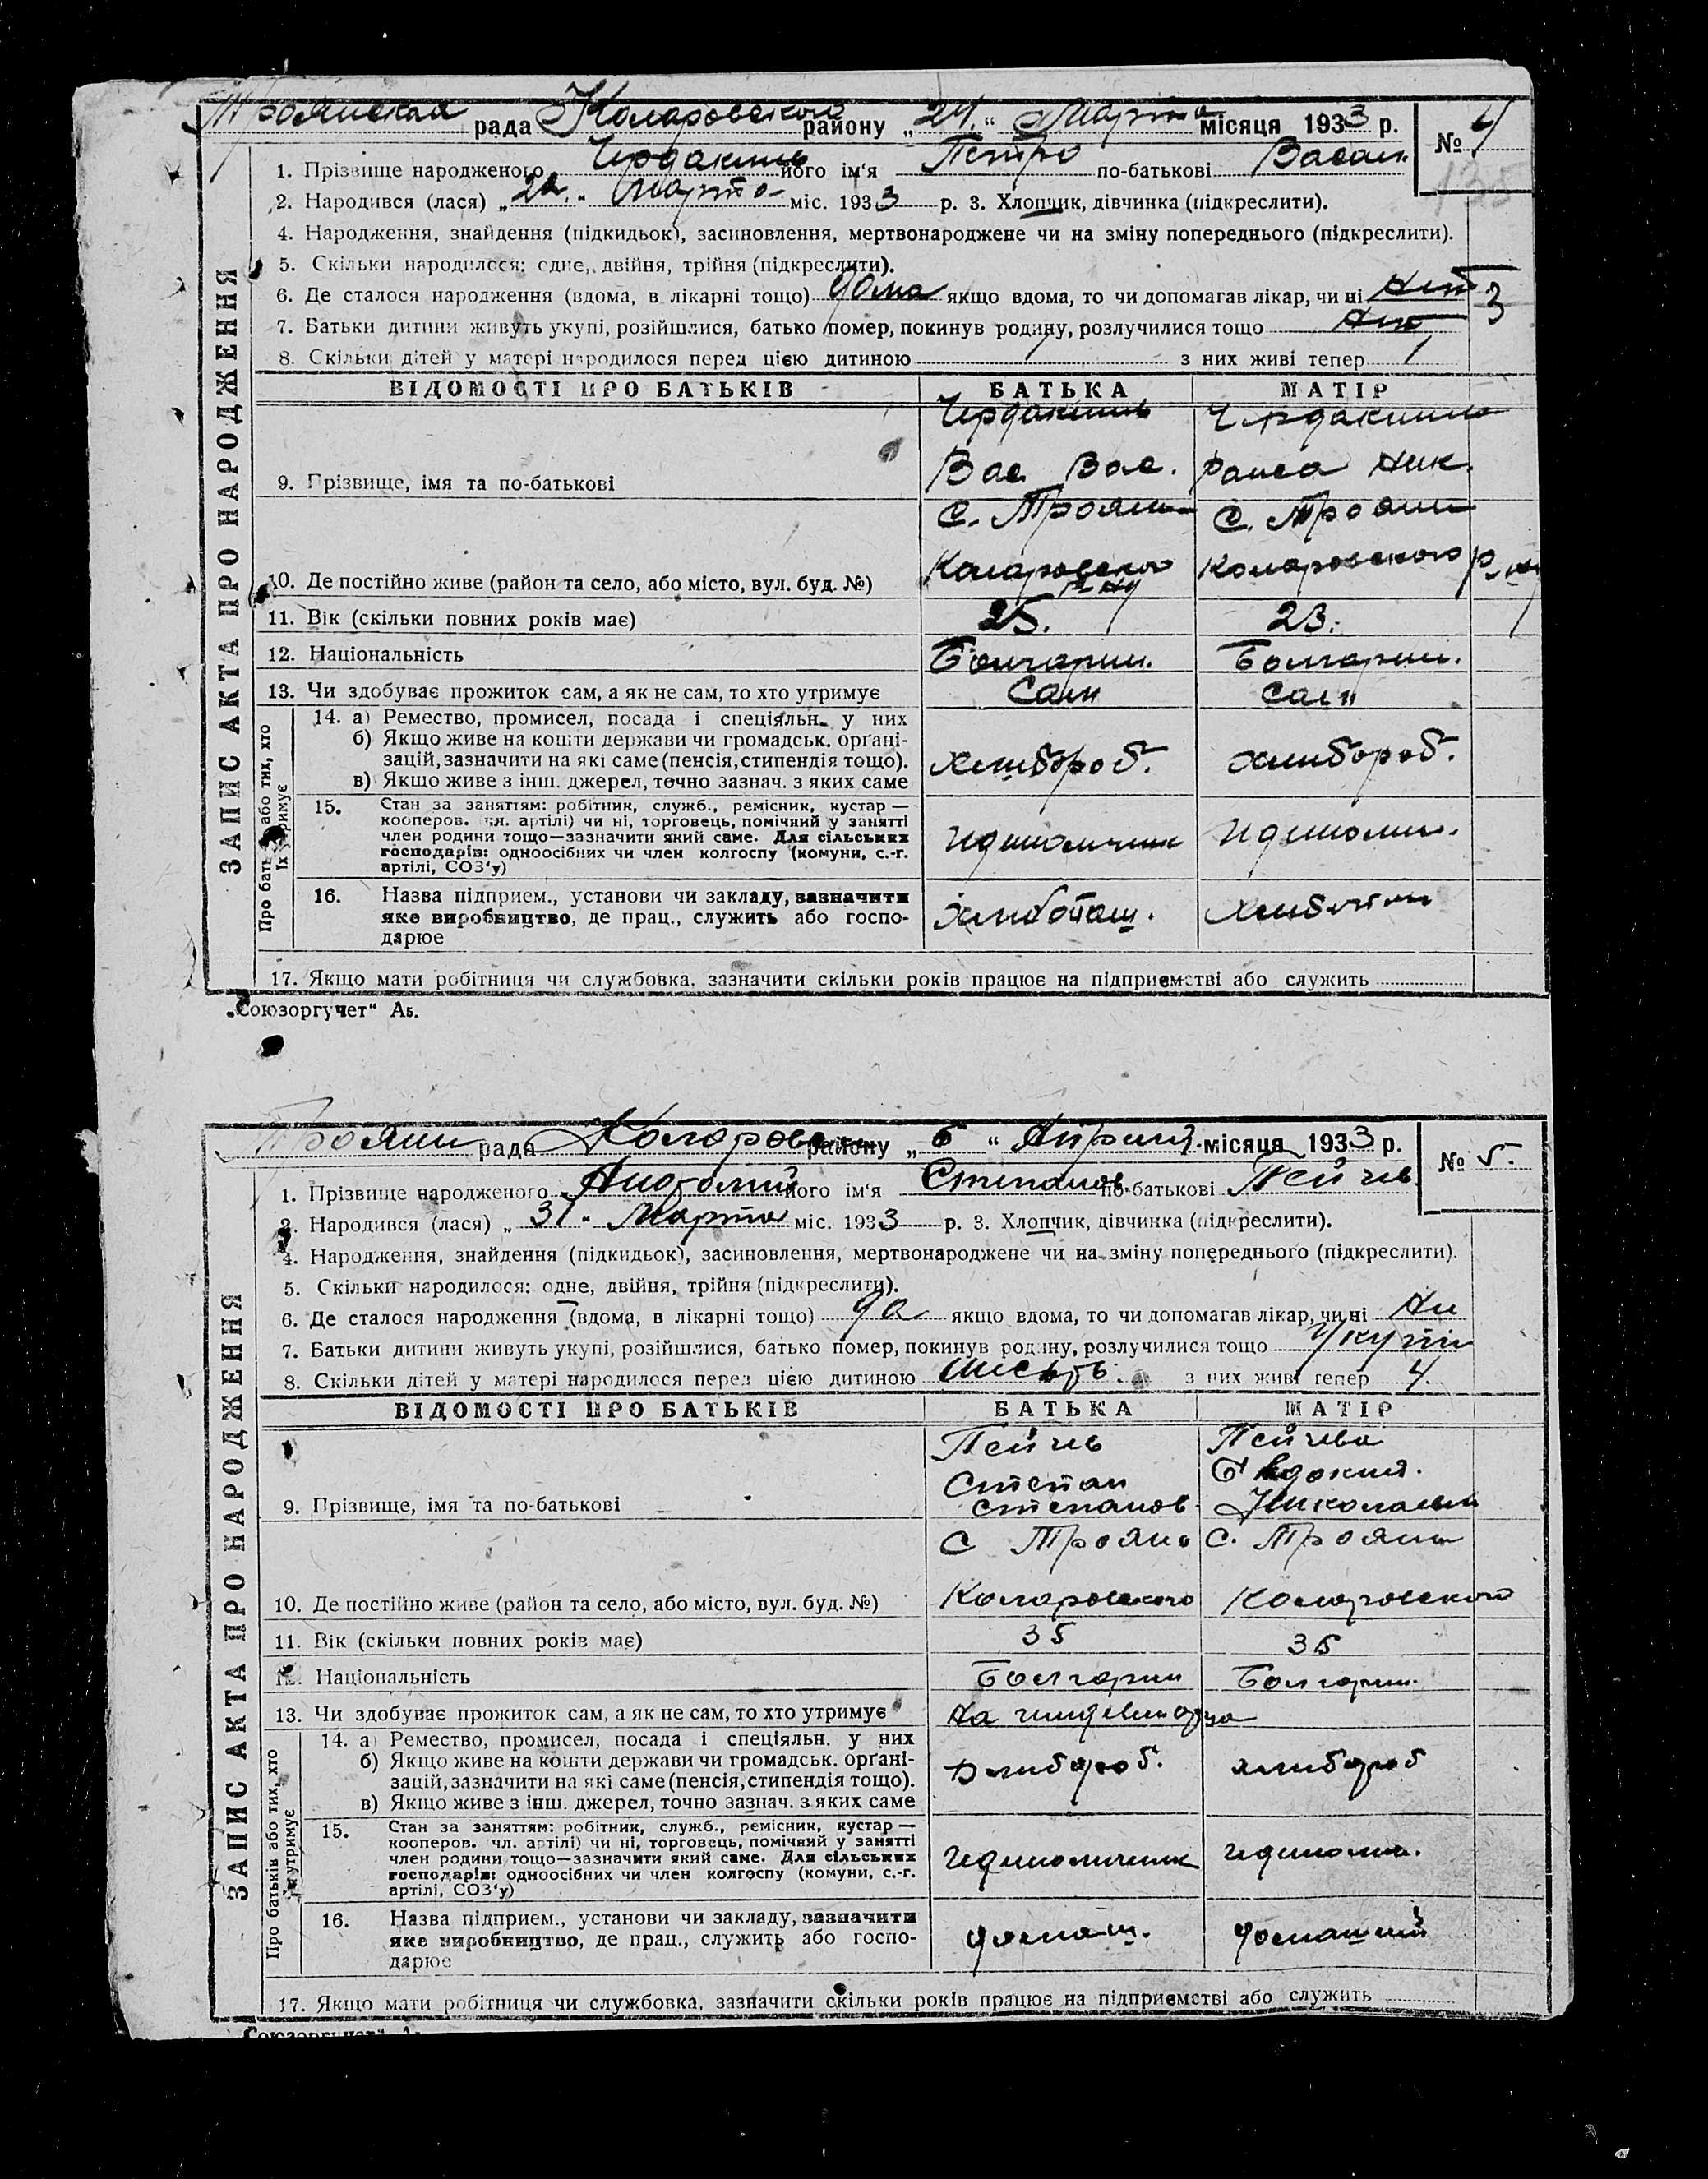 Трояновская рада Коларовского району „24.“ Марта місяця 1933 р. № 4
1. Прізвище народженого Чердаклиев його ім‘я Петро по-батькові Васил.
135
2. Народився (лася) „ “ Марта міс. 1933 р. 3. Хлопчик, дівчинка (підкреслити).
4. Народження, знайдення (підкидьок), засиновлення, мертвонароджене чи на зміну попереднього (підкреслити).
5. Скільки народилося: одне, двійня, трійня (підкреслити).
6. Де сталося народження (вдома, в лікарні тощо) дома якщо вдома, то чи допомагав лікар, чи ні 3
7. Батьки дитини живуть укупі, розійшлися, батько помер, покинув родину, розлучилися тощо
8. Скільки дітей у матері народилося перед цією дитиною 1 з них живі тепер 1
ВІДОМОСТІ ПРО БАТЬКІВ БАТЬКА МАТІР
Вас. Вас. Раиса Ник.
9. Прізвище, імя та по-батькові
С. Трояни С. Трояни
Коларовского р-ну Коларовского р-ну
10. Де постійно живе (район та село, або місто, вул. буд. №)
11. Вік (скільки повних років має) 25. 23.
12. Національність Болгарин. Болгарин.
13. Чи здобуває прожиток сам, а як не сам, то хто утримує Сами Сами
14. а) Ремество, промисел, посада і спеціяльн. у них
б) Якщо живе на кошти держави чи громадськ. орґані-
зацій, зазначити на які саме (пенсія, стипендія тощо). хлибороб. хлибороб.
в) Якщо живе з інш. джерел, точно зазнач. з яких саме
15. Стан за заняттям: робітник, служб., ремісник, кустар —
кооперов. (чл. артілі) чи ні, торговець, помічний у занятті
член родини тощо—зазначити який саме. Для сільських
господарів: одноосібних чи член колгоспу (комуни, с.-г.
артілі, СОЗ‘у)
16. Назва підприєм., установи чи закладу, зазначити
яке виробництво, де прац., служить або госпо-
дарює
17. Якщо мати робітниця чи службовка, зазначити скільки років працює на підприємстві або служить
ЗАПИС АКТА ПРО НАРОДЖЕННЯ
Про батьків або тих, хто
їх утримує
„Союзоргучет“ А5.
Трояни рада Коларовск району „6“ Априля місяця 1933 р. № 5.
1. Прізвище народженого Анатолий його ім‘я Степанов по-батькові Пейчев
2. Народився (лася) „31“ Марта міс. 1933 р. 3. Хлопчик, дівчинка (підкреслити).
4. Народження, знайдення (підкидьок), засиновлення, мертвонароджене чи на зміну попереднього (підкреслити).
5. Скільки народилося: одне, двійня, трійня (підкреслити).
6. Де сталося народження (вдома, в лікарні тощо) да якщо вдома, то чи допомагав лікар, чи ні Ни
7. Батьки дитини живуть укупі, розійшлися, батько помер, покинув родину, розлучилися тощо Укупи
8. Скільки дітей у матері народилося перед цією дитиною шисть. з них живі тепер 4.
ВІДОМОСТІ ПРО БАТЬКІВ БАТЬКА МАТІР
Пейчев Пейчева
Степан Евдокия.
9. Прізвище, імя та по-батькові Степанов Николаевн
С Трояно С. Трояни
10. Де постійно живе (район та село, або місто, вул. буд. №) Коларовского Коларовского
11. Вік (скільки повних років має) 35 35
12. Національність Болгарин Болгарин.
13. Чи здобуває прожиток сам, а як не сам, то хто утримує На
14. а) Ремество, промисел, посада і спеціяльн. у них
б) Якщо живе на кошти держави чи громадськ. орґані-
зацій, зазначити на які саме (пенсія, стипендія тощо). хлибороб. хлибороб
в) Якщо живе з інш. джерел, точно зазнач. з яких саме
15. Стан за заняттям: робітник, служб., ремісник, кустар —
кооперов. (чл. артілі) чи ні, торговець, помічний у занятті
член родини тощо—зазначити який саме. Для сільських
господарів: одноосібних чи член колгоспу (комуни, с.-г.
артілі, СОЗ‘у)
16. Назва підприєм., установи чи закладу, зазначити
яке виробництво, де прац., служить або госпо- домаш. домашний
дарює
17. Якщо мати робітниця чи службовка, зазначити скільки років працює на підприємстві або служить
ЗАПИС АКТА ПРО НАРОДЖЕННЯ
Про батьків або тих, хто
їх утримує